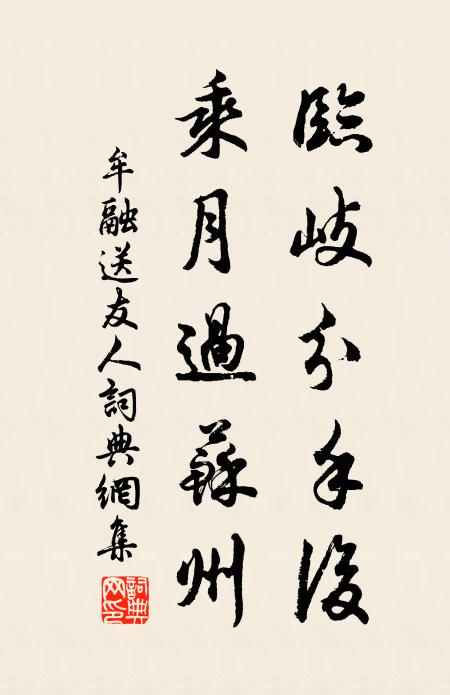 臨岐分手後
乘月過蘇州
牟融送友人詞典網集
詞典網印